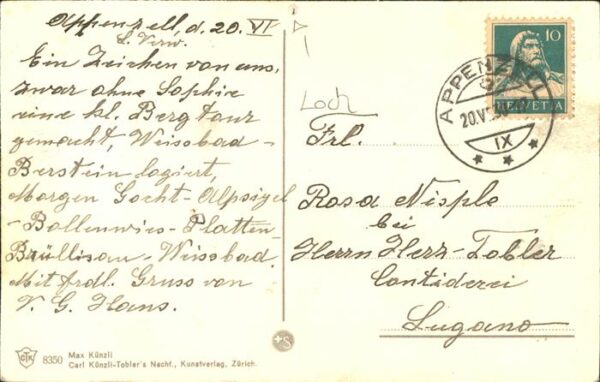 Appenzell, d. 20. VI
L. Verw.
Ein Zeichen von uns,
zwar ohne Sophie
eine kl. Bergtour
gemacht, Weissbad-
Berstein logiert,
Morgen Gocht-Alpsigel
- Bollenwies - Platten-
Brüllisau - Weissbad.
Mit frdl. Gruss von
T. G. Hans.
Loch
Frl.
Rosa Nisple
bei
Herrn Herz-Tobler
Contiderei
Lugano
10
HELVETIA
APPENZELL
20.V
IX
+S
GTK 8350 Max Künzli
Carl Künzli-Tobler's Nachf., Kunstverlag, Zürich.